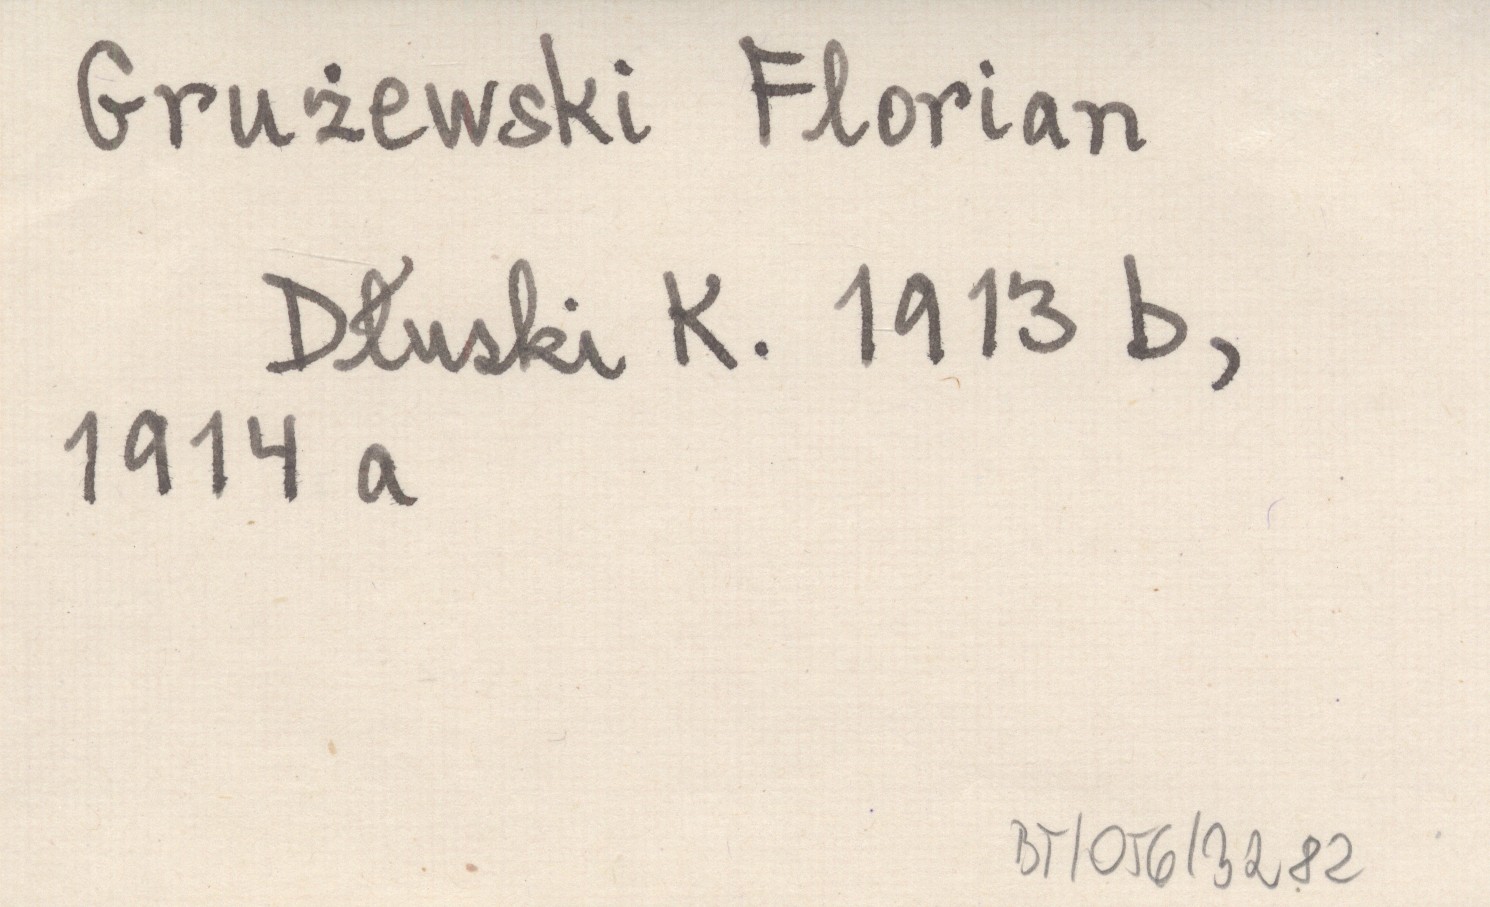 Grużewski Florian
Dłuski K. 1913 b,
1914 a
BT/056/3282